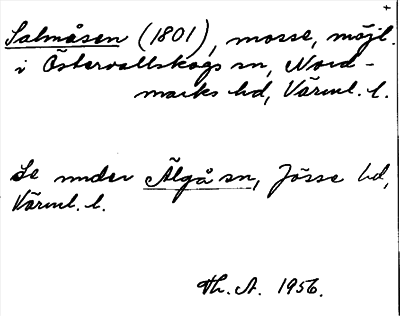 +
Salmåsen (1801), mosse, möjl.
i Östervallskogs sn, Nord-
marks hd, Värml. l.
Se under Älgå sn, Jösse hd,
Värml. l.
Th. A. 1956.